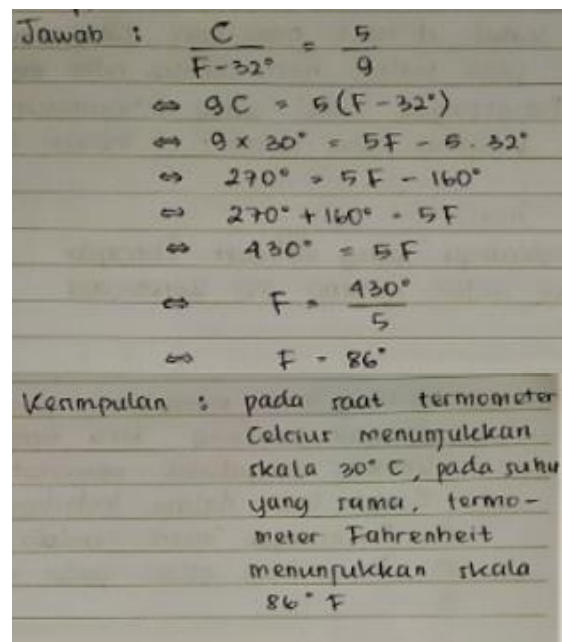 Jawab : C / F-32° = 5 / 9
⇔ 9C = 5(F-32°)
⇔ 9 × 30° = 5F - 5.32°
⇔ 270° = 5F - 160°
⇔ 270° + 160° = 5F
⇔ 430° = 5F
⇔ F = 430° / 5
⇔ F = 86°
Kesimpulan : pada saat termometer
Celcius menunjukkan
skala 30° C, pada suhu
yang sama, termo-
meter Fahrenheit
menunjukkan skala
86° F